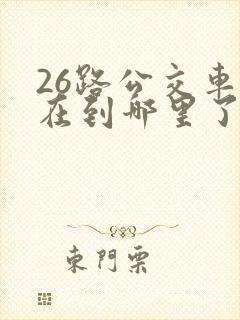 26路公交車
在到哪里了
東門票